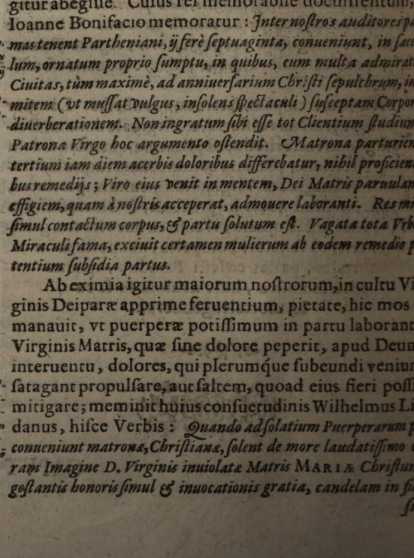 gitur abegisse. Cuius rei memorabile documentum,
Ioanne Bonifacio memoratur: Inter nostros auditores
mas tenent Partheniani, ij ferè septuaginta, conueniunt, in
lum, ornatum proprio sumptu, in quibus, cum multa admirat
Ciuitas, tùm maximè, ad anniuersarium Christi sepulchrum,
mitem (vt mussat vulgus, insolens spectaculi) susceptam Corpo
diuerberationem. Non ingratum sibi esse tot Clientium studium
Patrona Virgo hoc argumento ostendit. Matrona parturien
tertium iam diem acerbis doloribus differebatur, nihil proficien
bus remedijs; Viro eius venit in mentem, Dei Matris paruulam
effigiem, quam à nostris acceperat, admouere laboranti. Res mi
simul contactum corpus, & partu solutum est. Vagata tota Vrb
Miraculi fama, exciuit certamen mulierum ab eodem remedio p
tentium subsidia partus.
Ab eximia igitur maiorum nostrorum, in cultu Vi
ginis Deiparæ apprime feruentium, pietate, hic mos
manauit, vt puerperæ potissimum in partu laborant
Virginis Matris, quæ sine dolore peperit, apud Deum
interuentu, dolores, qui plerumque subeundi veniun
satagant propulsare, aut saltem, quoad eius fieri poss
mitigare; meminit huius consuetudinis Wilhelmus Li
danus, hisce Verbis: Quando ad solatium Puerperarum
conueniunt matronæ, Christianæ, solent de more laudatissimo
ram Imagine D. Virginis inuiolatæ Matris MARIÆ Christum
gestantis honoris simul & inuocationis gratia, candelam in